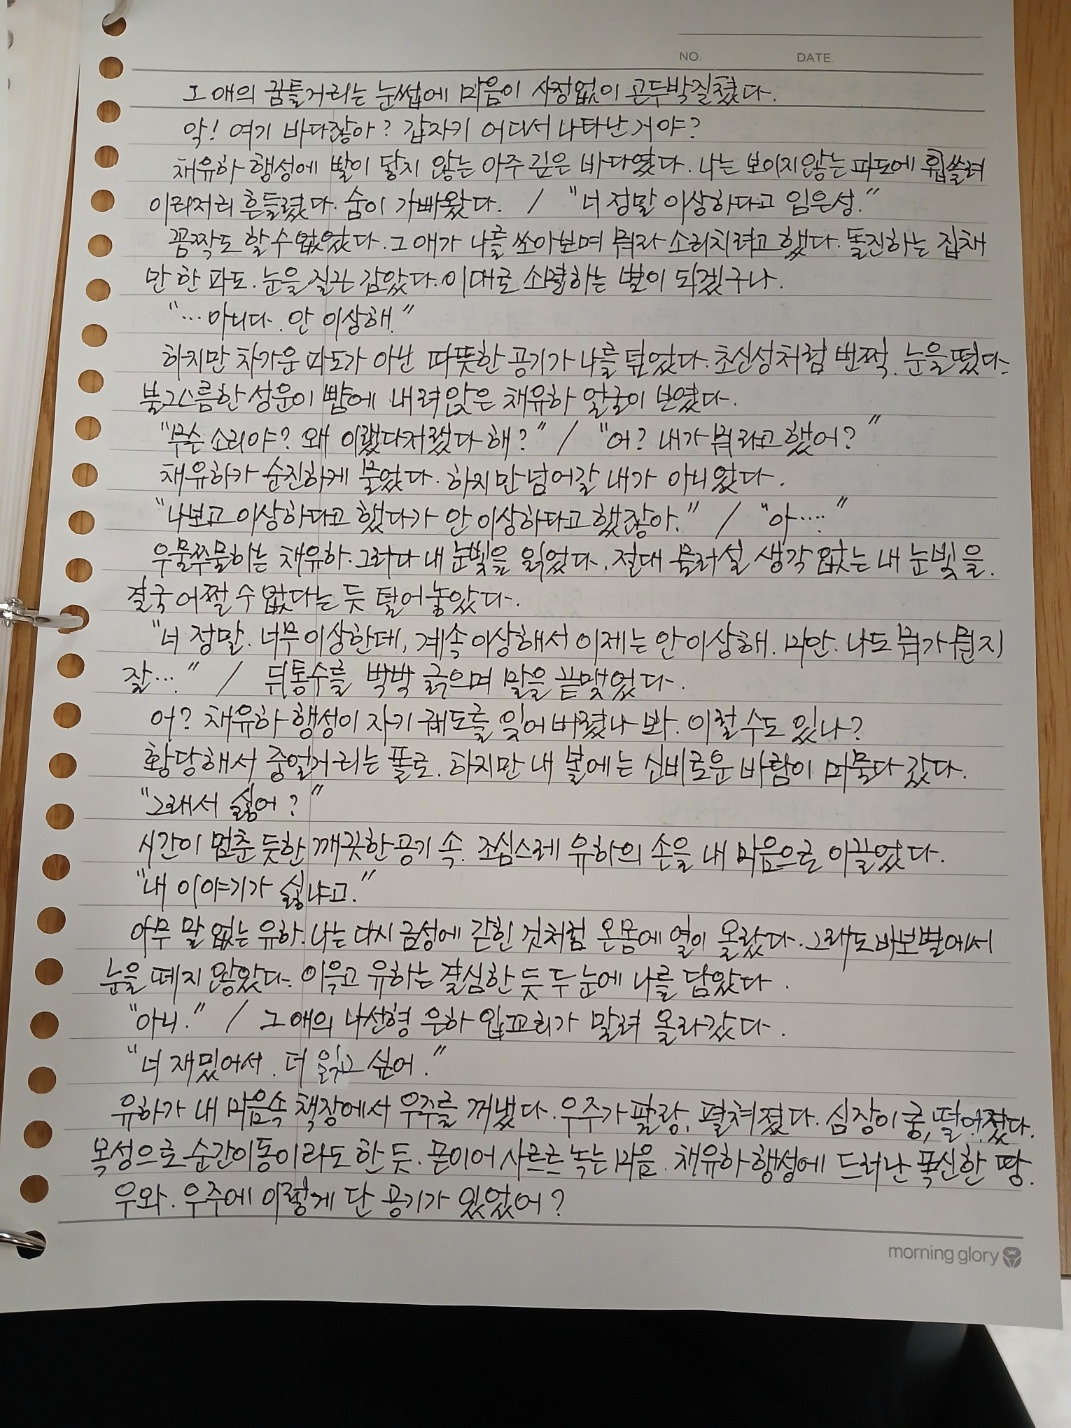 NO. DATE.
그 애의 꿈틀거리는 눈썹에 마음이 사정없이 곤두박질쳤다.
악! 여기 바다잖아? 갑자기 어디서 나타난거야?
채유하 행성에 발이 닿지 않는 아주 깊은 바다였다. 나는 보이지않는 파도에 휩쓸려
이리저리 흔들렸다. 숨이 가빠왔다. / "너 정말 이상하다고 임은성."
꼼짝도 할 수 없었다. 그 애가 나를 쏘아보며 뭐라 소리치려고 했다. 돌진하는 집채
만 한 파도. 눈을 질끈 감았다. 이대로 소멸하는 별이 되겠구나.
"…아니다. 안 이상해."
하지만 차가운 파도가 아닌 따뜻한 공기가 나를 덮었다. 초신성처럼 번쩍, 눈을 떴다.
불그스름한 성운이 뺨에 내려앉은 채유하 얼굴이 보였다.
"무슨 소리야? 왜 이랬다저랬다 해?" / "어? 내가 뭐라고 했어?"
채유하가 순진하게 물었다. 하지만 넘어갈 내가 아니었다.
"나보고 이상하다고 했다가 안 이상하다고 했잖아." / "아…."
우물쭈물하는 채유하. 그러다 내 눈빛을 읽었다. 절대 물러설 생각 없는 내 눈빛을.
결국 어쩔 수 없다는 듯 털어놓았다.
"너 정말. 너무 이상한데, 계속 이상해서 이제는 안 이상해. 미안. 나도 뭐가 뭔지
잘…." / 뒤통수를 벅벅 긁으며 말을 끝맺었다.
어? 채유하 행성이 자기 궤도를 잊어버렸나 봐. 이럴 수도 있나?
황당해서 중얼거리는 폴로. 하지만 내 볼에는 신비로운 바람이 머물다 갔다.
"그래서 싫어?"
시간이 멈춘 듯한 깨끗한 공기 속. 조심스레 유하의 손을 내 마음으로 이끌었다.
"내 이야기가 싫냐고."
아무 말 없는 유하. 나는 다시 금성에 갇힌 것처럼 온몸에 열이 올랐다. 그래도 바보별에서
눈을 떼지 않았다. 이윽고 유하는 결심한 듯 두 눈에 나를 담았다.
"아니." / 그 애의 나선형 은하 입꼬리가 말려 올라갔다.
"너 재밌어서. 더 읽고 싶어."
유하가 내 마음속 책장에서 우주를 꺼냈다. 우주가 팔랑, 펼쳐졌다. 심장이 쿵, 떨어졌다.
목성으로 순간이동이라도 한 듯. 뒤이어 사르르 녹는 마음. 채유하 행성에 드러난 폭신한 땅.
우와. 우주에 이렇게 단 공기가 있었어?
morning glory